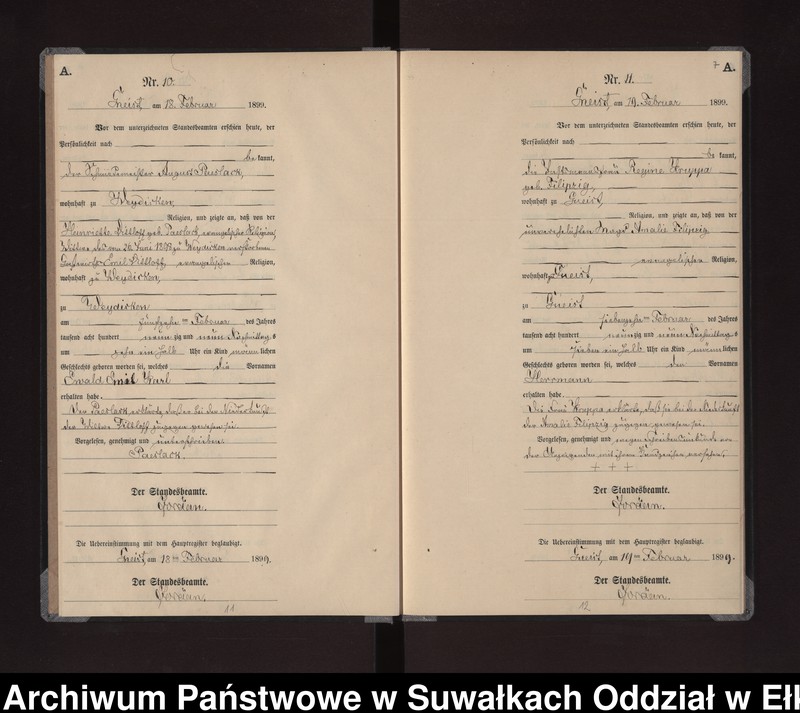 A.
Nr. 10.
Gneist am 18. Februar 1899.
Vor dem unterzeichneten Standesbeamten erschien heute, der
Persönlichkeit nach
bekannt,
der Schneidemeister August Paerlack,
wohnhaft zu Weydicken
Religion, und zeigte an, daß von der
Henriette geb. Paerlack, evangelischer Religion,
Wittwe des am Juni zu Weydicken verstorbenen
Emil evangelischer Religion,
wohnhaft zu Weydicken,
zu Weydicken
am fünfzehnten Februar des Jahres
tausend acht hundert neunzig und neun Nachmittags
um zehn ein halb Uhr ein Kind männlichen
Geschlechts geboren worden sei, welches die Vornamen
Ewald Emil Karl
erhalten habe.
Der Paerlack erklärte, daß er bei der Niederkunft
der Wittwe zugegen gewesen sei.
Vorgelesen, genehmigt und unterschrieben.
Paerlack.
Der Standesbeamte.
Jordan.
Die Uebereinstimmung mit dem Hauptregister beglaubigt.
Gneist am 18ten Februar 1899.
Der Standesbeamte.
Jordan.
11
7 A.
Nr. 11.
Gneist, am 19. Februar 1899.
Vor dem unterzeichneten Standesbeamten erschien heute, der
Persönlichkeit nach
bekannt,
die Regine Kruppa
geb. Filipzig,
wohnhaft zu Gneist,
Religion, und zeigte an, daß von der
unverehelichten Magd Amalie Filipzig
evangelischen Religion,
wohnhaft Gneist,
zu Gneist
am siebzehnten Februar des Jahres
tausend acht hundert neunzig und neun Nachmittags
um sieben ein halb Uhr ein Kind männlichen
Geschlechts geboren worden sei, welches den Vornamen
Herrmann
erhalten habe.
Die Frau Kruppa erklärte, daß sie bei der Niederkunft
der Amalie Filipzig zugegen gewesen sei.
Vorgelesen, genehmigt und wegen Schreibensunkunde von
der Anzeigenden mit ihrem Handzeichen versehen.
+ + +
Der Standesbeamte.
Jordan.
Die Uebereinstimmung mit dem Hauptregister beglaubigt.
Gneist, am 19ten Februar 1899.
Der Standesbeamte.
Jordan.
12
Archiwum Państwowe w Suwałkach Oddział w Ełk